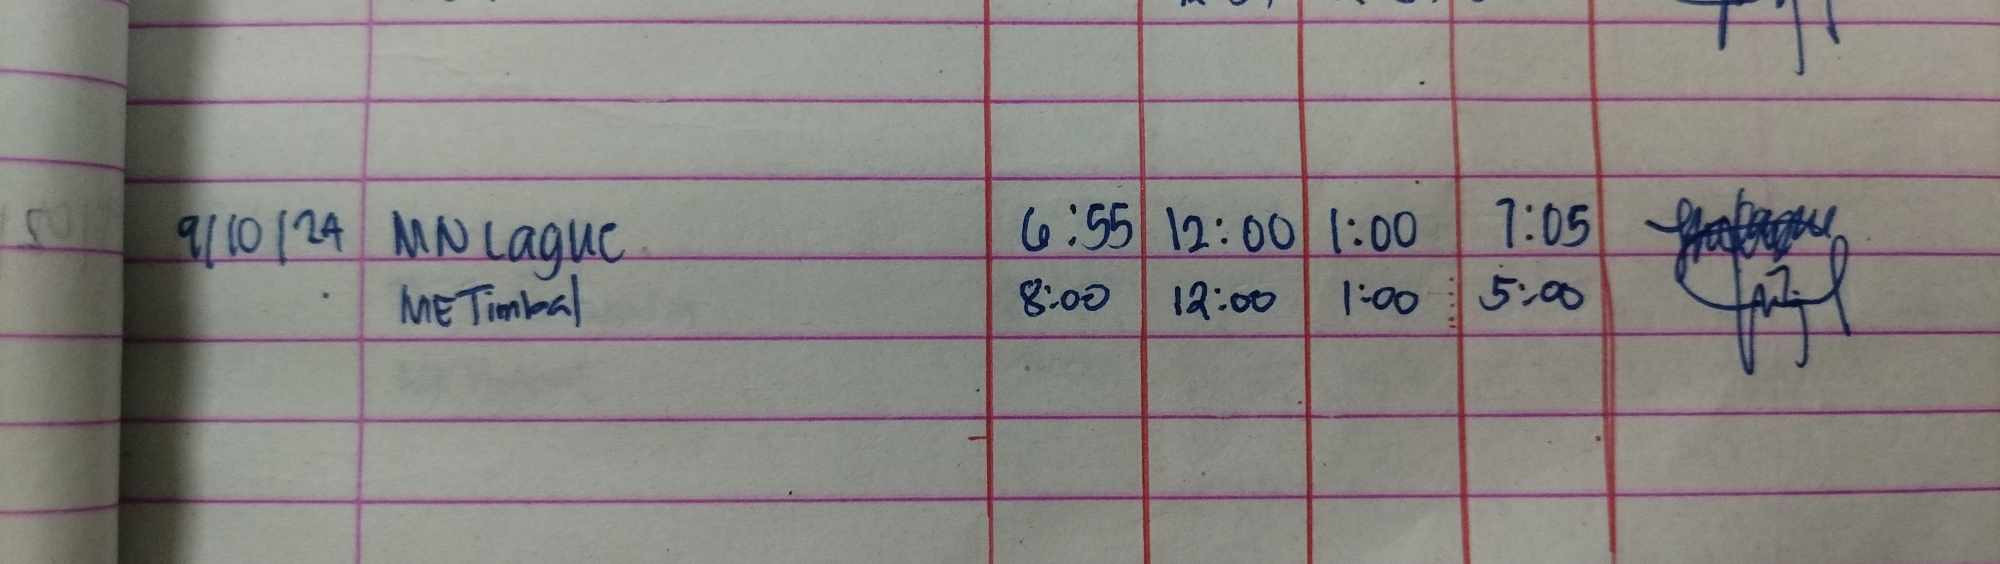 9/10/24 MN Lague 6:55 12:00 1:00 7:05
ME Timbal 8:00 12:00 1:00 5:00